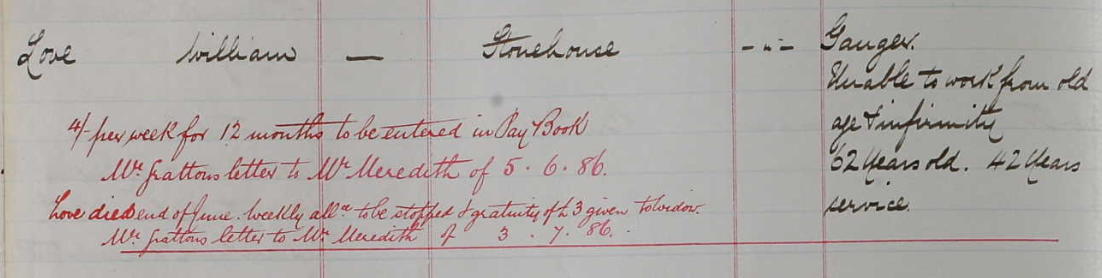 Love William — Stonehouse - " - Ganger.
Unable to work from old
age & infirmity
62 Years old. 42 Years
service.
4/- per week for 12 months to be entered in Pay Book
Mr. Grattons letter to Mr. Meredith of 5. 6. 86.
Love died end of June. Weekly allce. to be stopped & gratuity of £3 given to widow.
Mr. Grattons letter to Mr. Meredith of 3. 7. 86.